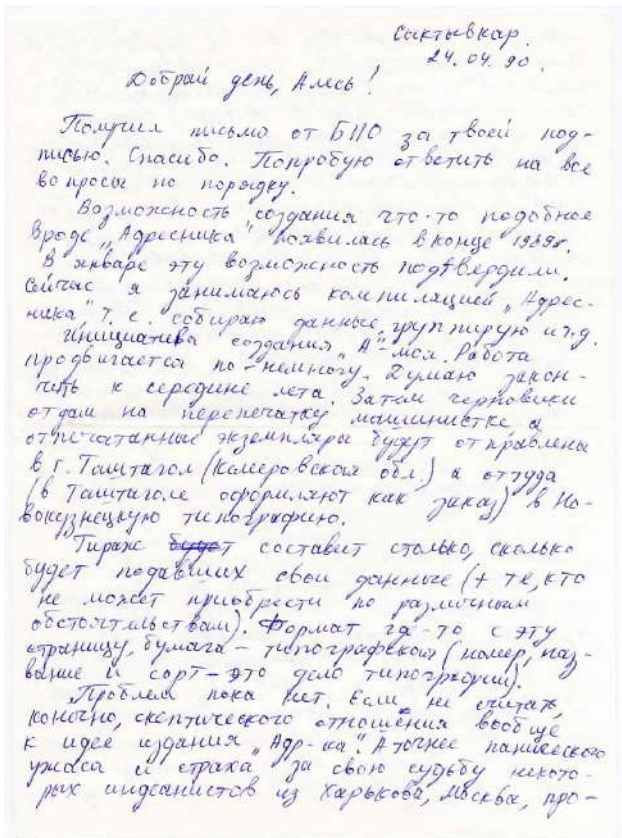 Сыктывкар.
24.04.90.
Добрый день, Алесь!
Получил письмо от БПО за твоей под-
писью. Спасибо. Попробую ответить на все
вопросы по порядку.
Возможность создания что-то подобное
вроде „Адресника" появилась в конце 1989г.
В январе эту возможность подтвердили.
Сейчас я занимаюсь компиляцией „Адрес-
ника" т.е. собираю данные, группирую и т.д.
Инициатива создания „А"-моя. Работа
продвигается по-немногу. Думаю закон-
чить к середине лета. Затем черновики
отдам на перепечатку машинистке, а
отпечатанные экземпляры будут отправлены
в г. Таштагол (Кемеровская обл.) а оттуда
(в Таштаголе оформляют как заказ) в Но-
вокузнецкую типографию.
Тираж составит столько, сколько
будет подавших свои данные (+ те, кто
не может приобрести по различным
обстоятельствам). Формат где-то с эту
страницу, бумага - типографская (номер, наз-
вание и сорт - это дело типографии).
Проблем пока нет. Если не считать,
конечно, скептического отношения вообще
к идее издания „Адр-ка". А точнее панического
ужаса и страха за свою судьбу некото-
рых индеанистов из Харькова, Москвы, про-